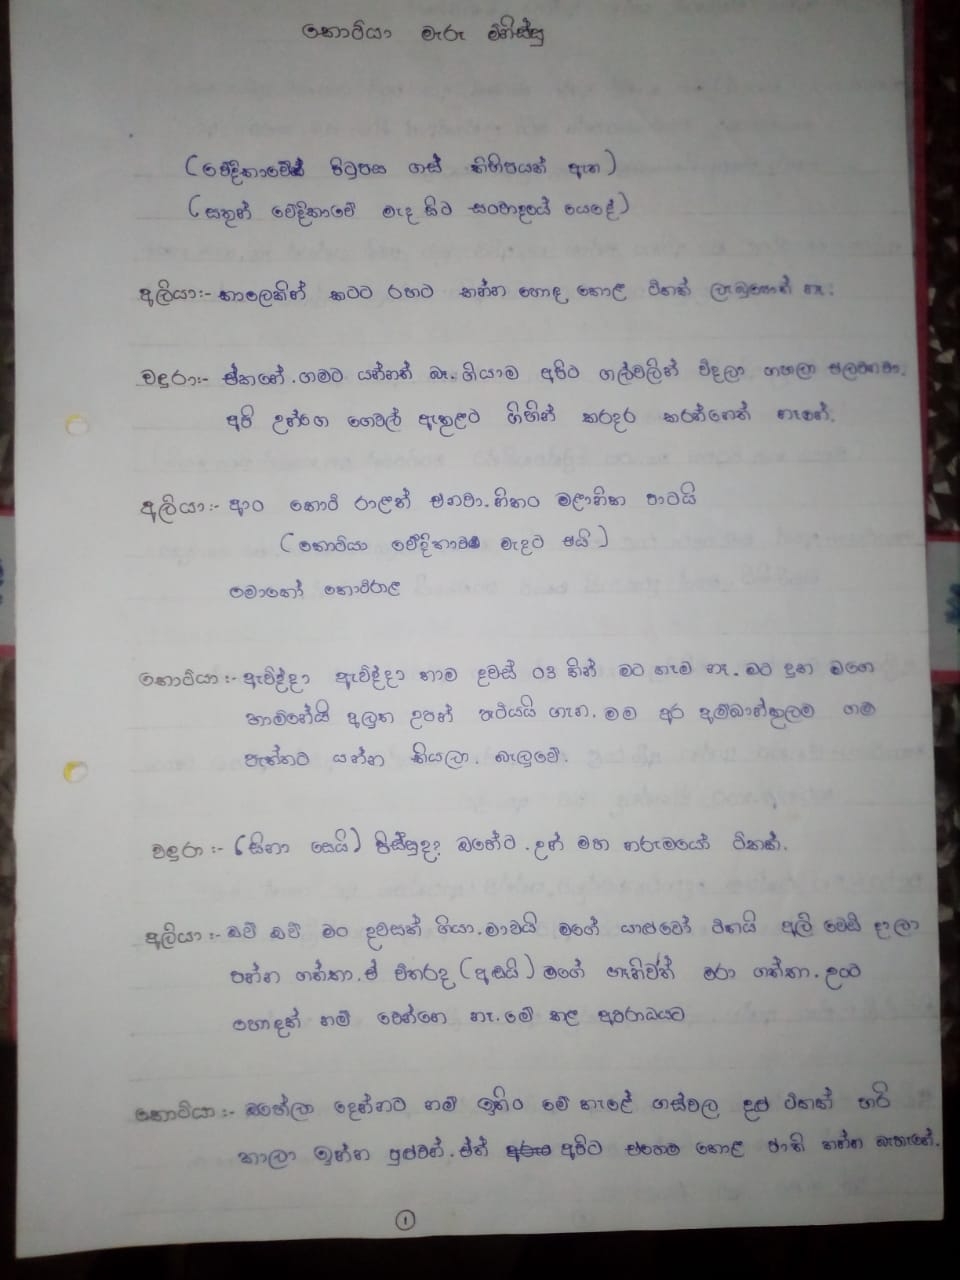 කොටියා මැරූ මිනිස්සු
(වේදිකාවේ පිටුපස ගස් කිහිපයක් ඇත)
(සතුන් වේදිකාවේ මැද සිට සංවාදයේ යෙදේ)
අලියා:- කාලෙකින් කටට රහට කන්න හොඳ කොළ ටිකක් ලැබුනොත් නෑ.
වඳුරා:- ඒකනේ. ගමට යන්නත් බෑ. ගියාම අපිට ගල්වලින් විදලා ගහලා එලවනවා.
අපි උන්ගෙ ගෙවල් ඇතුළට ගිහින් කරදර කරන්නෙත් නෑනේ.
අලියා:- ආං කොටි රාළත් එනවා. නිකං මළානික පාටයි
(කොටියා වේදිකාව මැදට එයි)
මොකෝ කොටිරාළ
කොටියා:- ඇවිද්දා ඇවිද්දා තාම දවස් 03 කින් මට කෑම නෑ. මට දුක මගෙ
නෝනයි අලුත උපන් පැටියයි ගැන. මම අර අම්බාන්කුලම ගම
පැත්තට යන්න කියලා. බැලුවේ.
වඳුරා:- (සිනා සෙයි) පිස්සුද? ඔහේට. උන් මහ නරුමයෝ ටිකක්.
අලියා:- ඔව් ඔව් මං දවසක් ගියා. මාවයි මගේ යාළුවෝ ටිකයි අලි වෙඩි දාලා
පන්න ගත්තා. ඒ විතරද (අඬයි) මගේ ගෑනිවත් මරා ගත්තා. උංට
හොඳක් නම් වෙන්නෙ නෑ. මේ කළ අපරාධයට
කොටියා:- ඔහේලා දෙන්නට නම් ඉතිං මේ කැලේ ගස්වල දළු ටිකක් හරි
කාලා ඉන්න පුළුවන්. ඒත් අපිට එහෙම කොළ ජාති කන්න බැහැනේ.
1